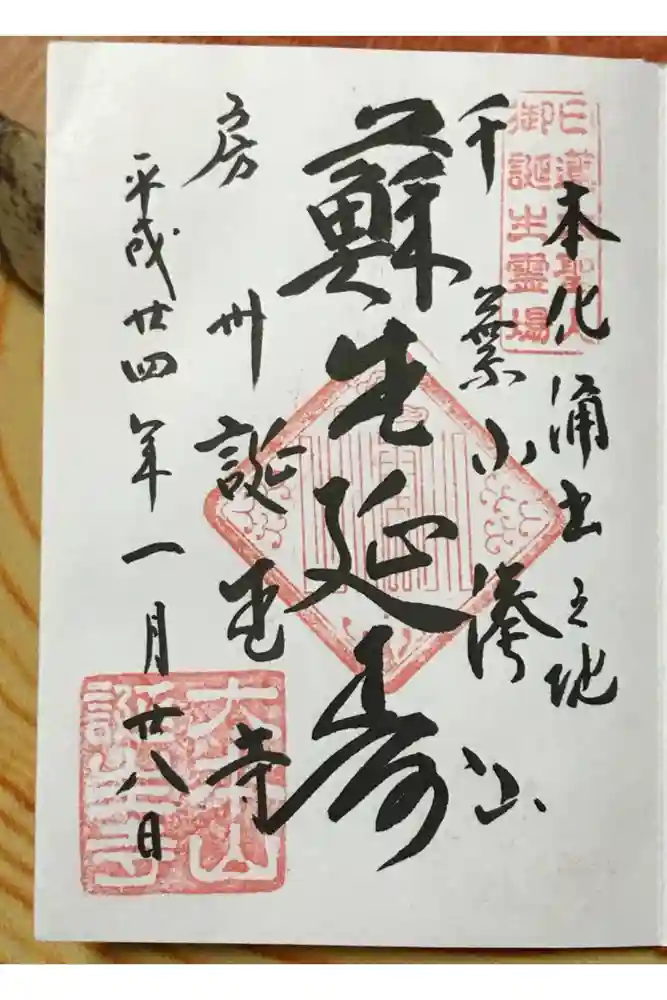 日蓮大聖人
御誕生霊場
本化涌出之地
千葉小湊山
蘇生延寿
房州誕生寺
平成廿四年一月廿八日
大本山
誕生寺